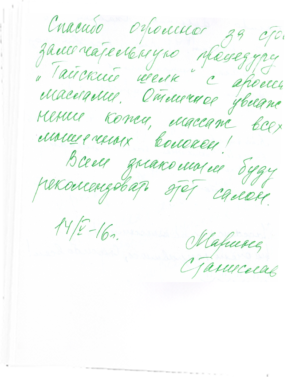 Спасибо огромное за сто
замечательную процедуру
„Тайский шелк" с арома
маслами. Отличное увлаж
нение кожи, массаж всех
мышечных волокон!
Всем знакомым буду
рекомендовать этот салон.
14/V-16г.
Марина
Станислав